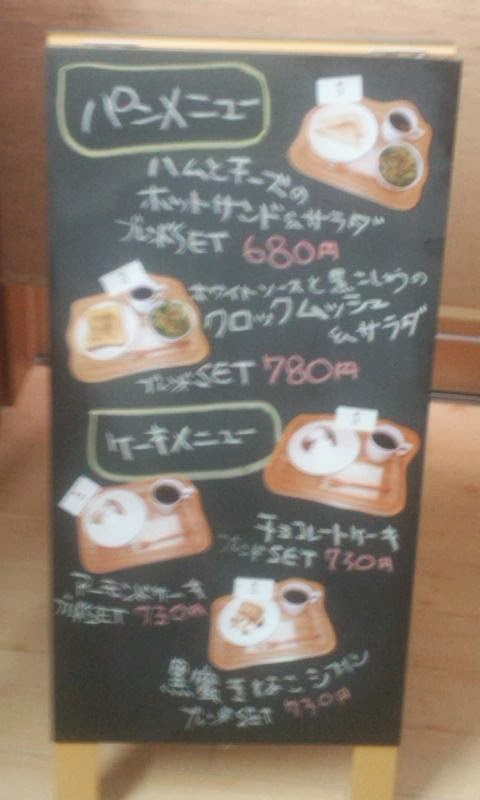 パンメニュー
ハムとチーズの
ホットサンド&サラダ
ブレンドSET 680円
ホワイトソースと黒こしょうの
クロックムッシュ
&サラダ
ブレンドSET 780円
ケーキメニュー
チョコレートケーキ
ブレンドSET 730円
アーモンドケーキ
ブレンドSET 730円
黒蜜きなこシフォン
ブレンドSET 730円